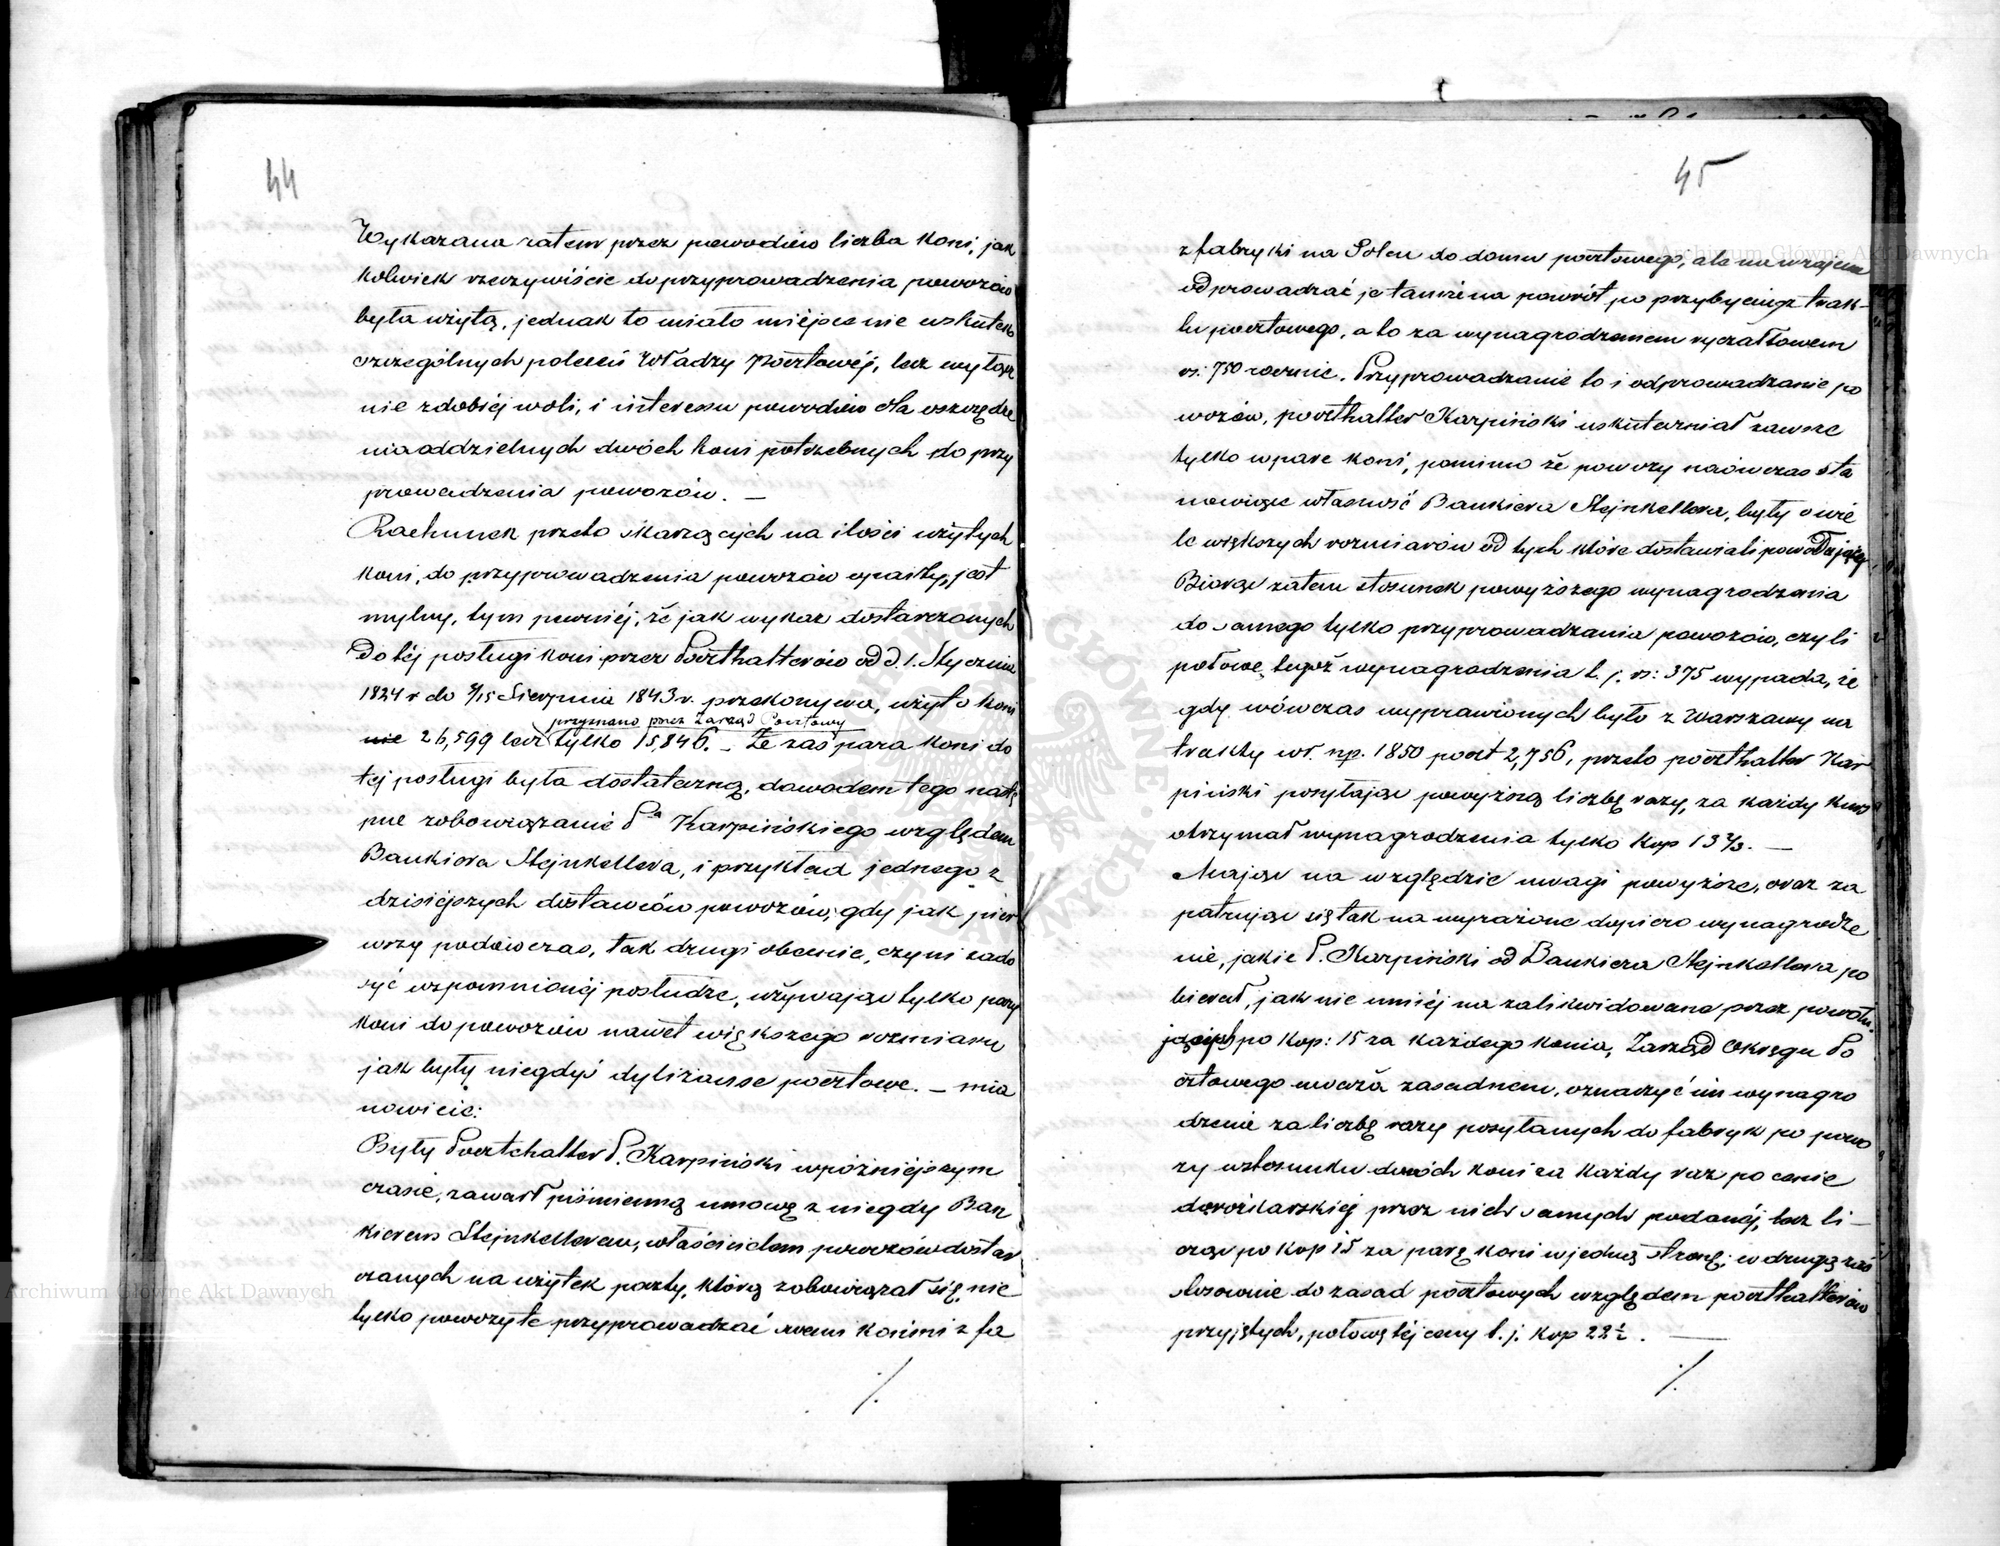 44
Wykazana zatem przez powodów liczba koni, jak
kolwiek rzeczywiście do przyprowadzenia powozów
była użytą, jednak to miało miéjsce nie wskutek
szczególnych poleceń Władzy Pocztowéj, lecz wyłącz
nie z dobréj woli, i interessu powodów dla oszczędze
nia oddzielnych dwóch koni potrzebnych do przy
prowadzenia powozów. —
Rachunek przeto skarżących na ilości użytych
koni, do przyprowadzenia powozów oparty, jest
mylny, tym pewniéj, że jak wykaz dostarczonych
do téj posługi koni przez Poczthalterów od d. 1. Stycznia
1824 r do 3/15 Sierpnia 1843 r. przekonywa, użyto koni
przyznano przez Zarząd Pocztowy
nie 26,599 lecz tylko 15,846. — Że zaś para koni do
téj posługi była dostateczną, dowodem tego nastę
pne zobowiązanie Pa Karpińskiego względem
Bankiera Stejnkellera, i przykład jednego z
dzisiéjszych dostawców powozów, gdy jak pier
wszy podówczas, tak drugi obecnie, czyni zado
syć wspomnionéj posłudze, używając tylko pary
koni do powozów nawet większego rozmiaru
jak były niegdyś dyliżanse pocztowe. — mia
nowicie:
Były Poczthalter P. Karpiński w późniéjszym
czasie, zawarł piśmienną umowę z niegdy Ban
kierem Stejnkellerem, właścicielem powozów dostar
czanych na użytek poczty, którą zobowiązał się nie
tylko powozy te przyprowadzać swemi końmi z fa
./.
45
z fabryki na Solcu do domu pocztowego, ale nawzajem
odprowadzać je tamże na powrót po przybyciu z trak-
tu pocztowego, a to za wynagrodzeniem ryczałtowem
rs: 750 rocznie. Przyprowadzanie to i odprowadzanie po
wozów, poczthalter Karpiński uskuteczniał zawsze
tylko w parę koni, pomimo że powozy naówczas sta
nowiące własność Bankiera Stejnkellera, były o wie
le większych rozmiarów od tych które dostawiali powodujący
Biorąc zatem stosunek powyższego wynagrodzenia
do samego tylko przyprowadzania powozów, czyli
połowę tegoż wynagrodzenia t. j. rs: 375 wypada, że
gdy wówczas wyprawionych było z Warszawy na
trakty w r. np. 1850 poczt 2,756, przeto poczthalter Kar
piński posyłając powyższą liczbę razy, za każdy kurs
otrzymał wynagrodzenia tylko kop 13 2/3. —
Mając na względzie uwagi powyższe, oraz za
patrując się tak na wyrażone dopiero wynagrodze
nie, jakie P. Karpiński od Bankiera Stejnkellera po
bierał, jak nie mniéj na zalikwidowane przez powodu
jących po kop: 15 za każdego konia, Zarząd Okręgu Po
cztowego uważa zasadnem, oznaczyć im wynagro
dzenie za liczbę razy posyłanych do fabryk po powo
zy w stosunku dwóch koni za każdy raz po cenie
dorożkarskiéj przez nich samych podanéj, lecz li—
cząc po kop 15 za parę koni w jedną stronę; w drugą zaś
stosownie do zasad pocztowych względem poczthalterów
przyjętych, połowę téj ceny t. j. kop 22 1/2. —
./.
Archiwum Główne Akt Dawnych
Archiwum Główne Akt Dawnych